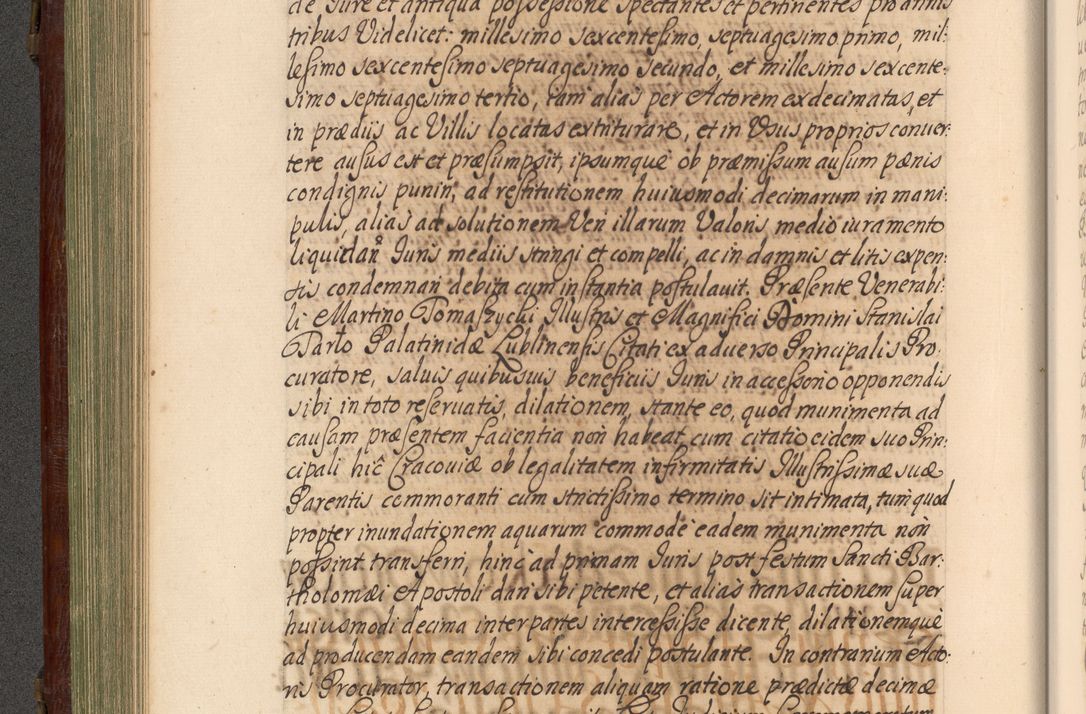 de Jure et antiqua possessione spectantes et pertinentes pro annis
tribus Videlicet: millesimo sexcentesimo, septuagesimo primo, mil-
lesimo sexcentesimo septuagesimo secundo, et millesimo sexcente-
simo septuagesimo tertio, iam alias per Actorem ex decimatas, et
in prædiis ac Villis locatas extriturare, et in Usus proprios conver-
tere ausus est et præsumpsit, ipsumque ob præmissum ausum pænis
condignis puniri, ad restitutionem huiusmodi decimarum in mani-
pulis, alias ad solutionem Veri illarum Valoris medio iuramento
liquidan Juris mediis stringi et compelli, ac in damnis et litis expen-
sis condemnari debita cum instantia postulavit. Præsente Venerabi-
li Martino Tomaszycki Illustris et Magnifici Domini Stanislai
Parło Palatinidæ Lublinensis Citati ex adverso Principalis Pro-
curatore, salvis quibusvis beneficiis Juris in accessorio opponendis
sibi in toto reservatis, dilationem, stante eo, quod munimenta ad
causam præsentem facientia non habeat, cum citatio eidem suo Prin-
cipali hic Cracoviæ ob legalitatem infirmitatis Illustrissimæ suæ
Parentis commoranti cum strictissimo termino sit intimata, tum quod
propter inundationem aquarum commode eadem munimenta non
possint transferri, hinc ad primam Juris post festum Sancti Bar-
tholomæi Apostoli dari sibi petente, et alias transactionem super
huiusmodi decima inter partes intercessisse dicente, dilationemque
ad producendam eandem sibi concedi postulante. In contrarium Acto-
ris Procurator, transactionem aliquam ratione prædictæ decimæ